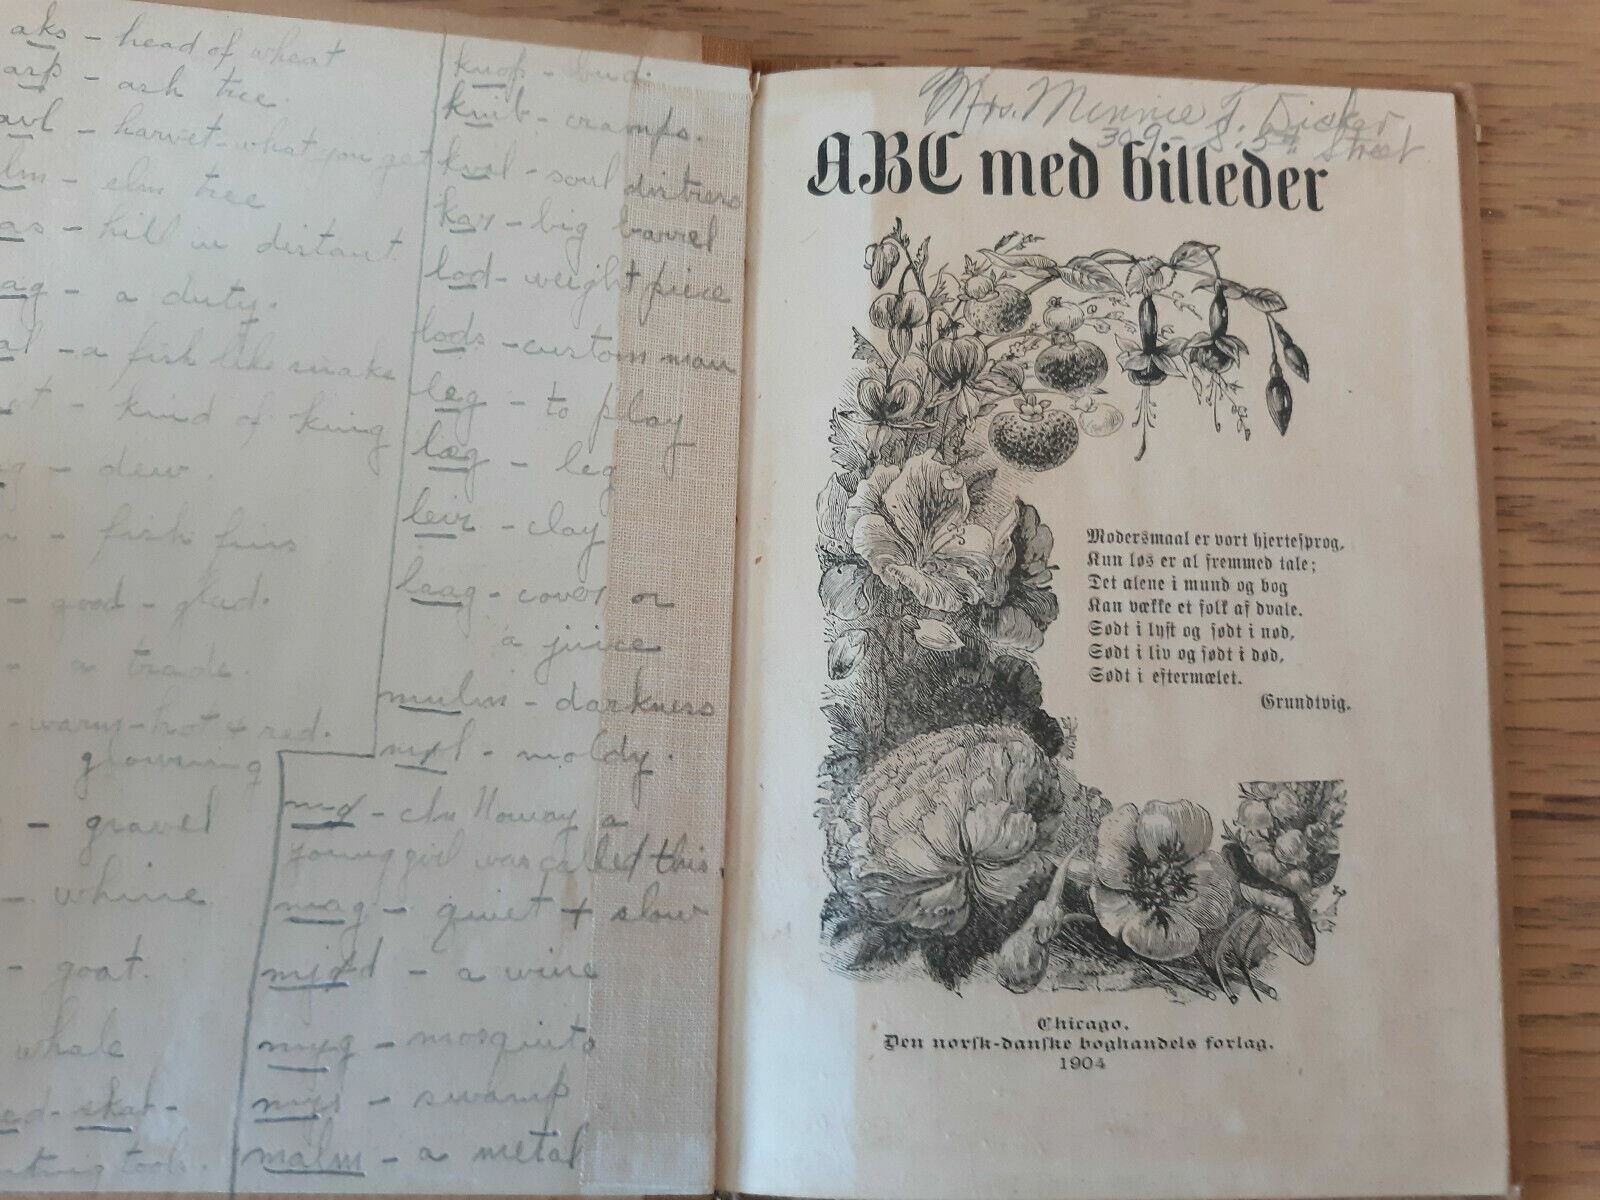 aks - head of wheat
ask - ash tree.
avl - harvet - what you get
lm - elm tree
as - hill in distant
ag - a duty.
al - a fish like snake
- kind of king
- dew.
- fish fins
- good - glad.
- a trade.
- warm - hot + red.
glowing
- gravel
- whine
- goat.
whale
ed - skab -
tools.
knop - bud.
knib - cramps.
kval - soul distress
kar - big barrel
lod - weight piece
lods - custom man
leg - to play
læg - leg
leir - clay
laag - cover or
a juice
mulm - darkness
myl - moldy.
mø - in Norway a
young girl was called this.
mag - quiet + slow
mjød - a wine
myg - mosquito
myr - swamp
malm - a metal
Mrs. Minnie
309 - S. 5th Street
ABC med billeder
Modersmaal er vort hjertesprog,
Kun løs er al fremmed tale;
Det alene i mund og bog
Kan vække et folk af dvale.
Sødt i lyst og sødt i nød,
Sødt i liv og sødt i død,
Sødt i eftermælet.
Grundtvig.
Chicago.
Den norsk-danske boghandels forlag.
1904